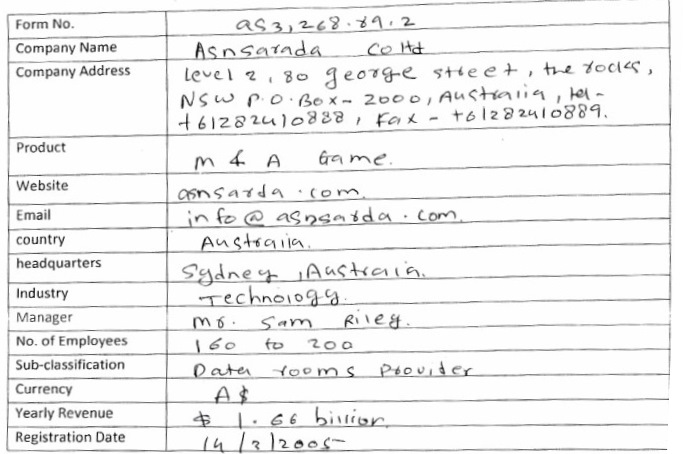 Form No. as3,268.89.2
Company Name Asnsarada Co ltd
Company Address Level 2, 80 george street, the rocks,
NSW P.O.Box- 2000, Australia, tel-
+61282410888, Fax - +61282410889.
Product M & A Game.
Website asnsarda.com.
Email info@asnsarda.com.
country Australia.
headquarters Sydney, Austraia.
Industry Technology.
Manager mr. Sam Riley.
No. of Employees 160 to 200
Sub-classification Data rooms Provider
Currency A$
Yearly Revenue $ 1.66 billion.
Registration Date 14/2/2005